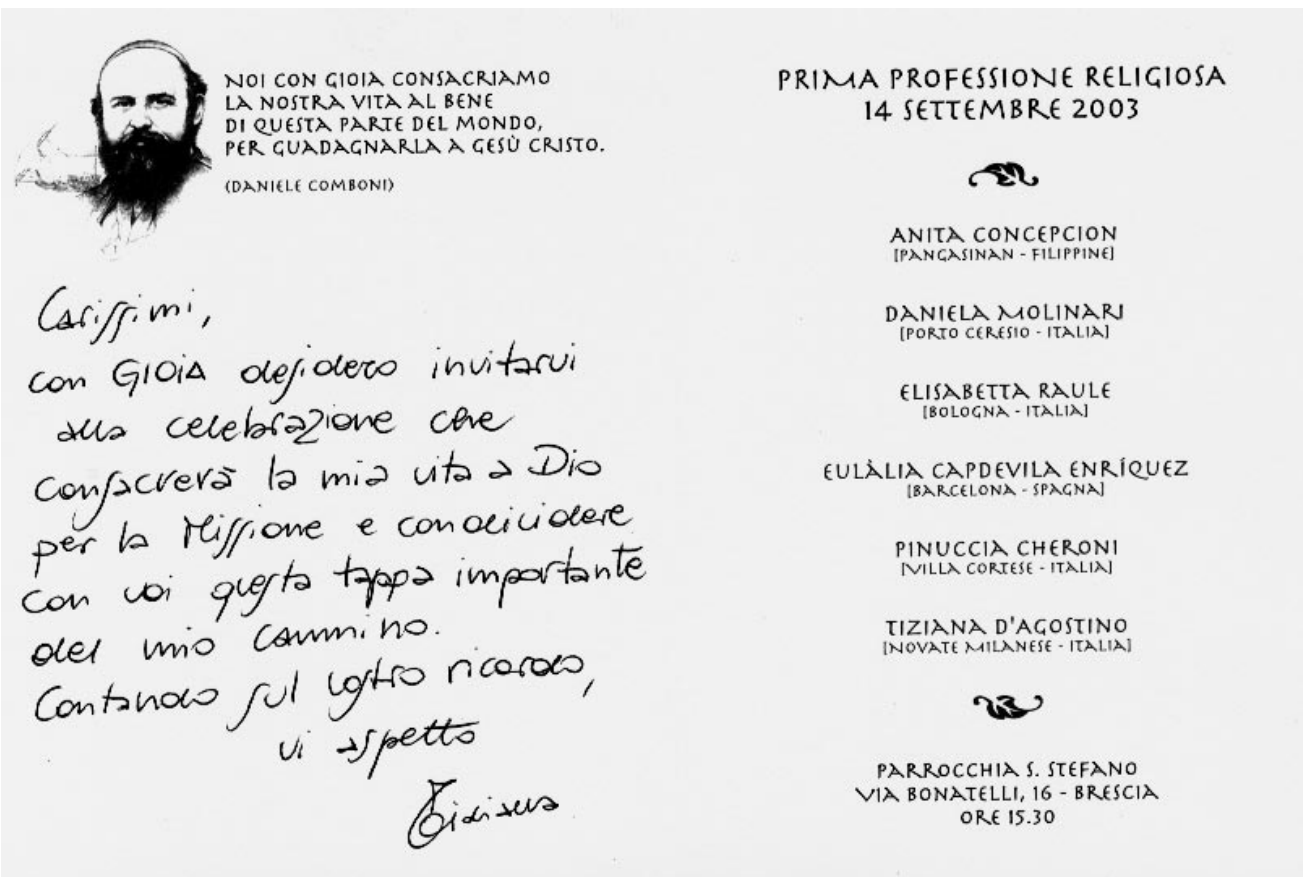 NOI CON GIOIA CONSACRIAMO
LA NOSTRA VITA AL BENE
DI QUESTA PARTE DEL MONDO,
PER GUADAGNARLA A GESÙ CRISTO.
(DANIELE COMBONI)
Carissimi,
con GIOIA desidero invitarvi
alla celebrazione che
consacrerà la mia vita a Dio
per la Missione e condividere
con voi questa tappa importante
del mio cammino.
Contando sul vostro ricordo,
vi aspetto
Tiziana
PRIMA PROFESSIONE RELIGIOSA
14 SETTEMBRE 2003
ANITA CONCEPCION
[PANGASINAN - FILIPPINE]
DANIELA MOLINARI
[PORTO CERESIO - ITALIA]
ELISABETTA RAULE
[BOLOGNA - ITALIA]
EULÀLIA CAPDEVILA ENRÍQUEZ
[BARCELONA - SPAGNA]
PINUCCIA CHERONI
[VILLA CORTESE - ITALIA]
TIZIANA D'AGOSTINO
[NOVATE MILANESE - ITALIA]
PARROCCHIA S. STEFANO
VIA BONATELLI, 16 - BRESCIA
ORE 15.30